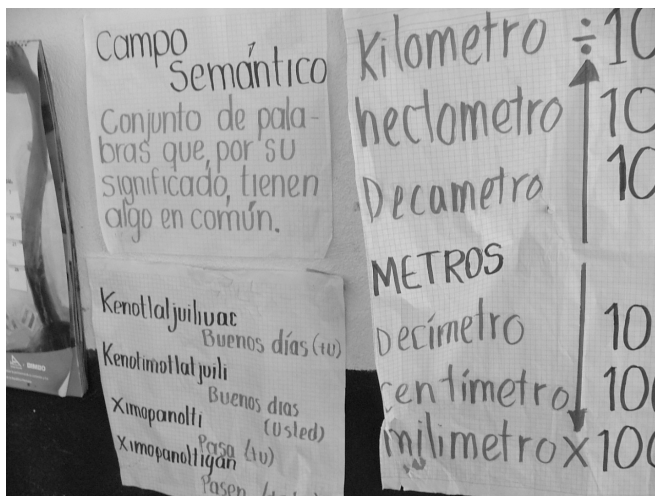 Campo
Semántico
Conjunto de pala-
bras que, por su
significado, tienen
algo en común.
Kenotlaljuiliuac
Buenos días (tu)
Kenotimotlatjuili
Buenos dias
(Usted)
Ximopanolti
Pasa (tu)
Ximopanoltigan
Pasen
Kilometro ÷10
hectometro 10
Decametro 10
METROS
Decímetro 10
centímetro 100
milimetro x 100
BIMBO